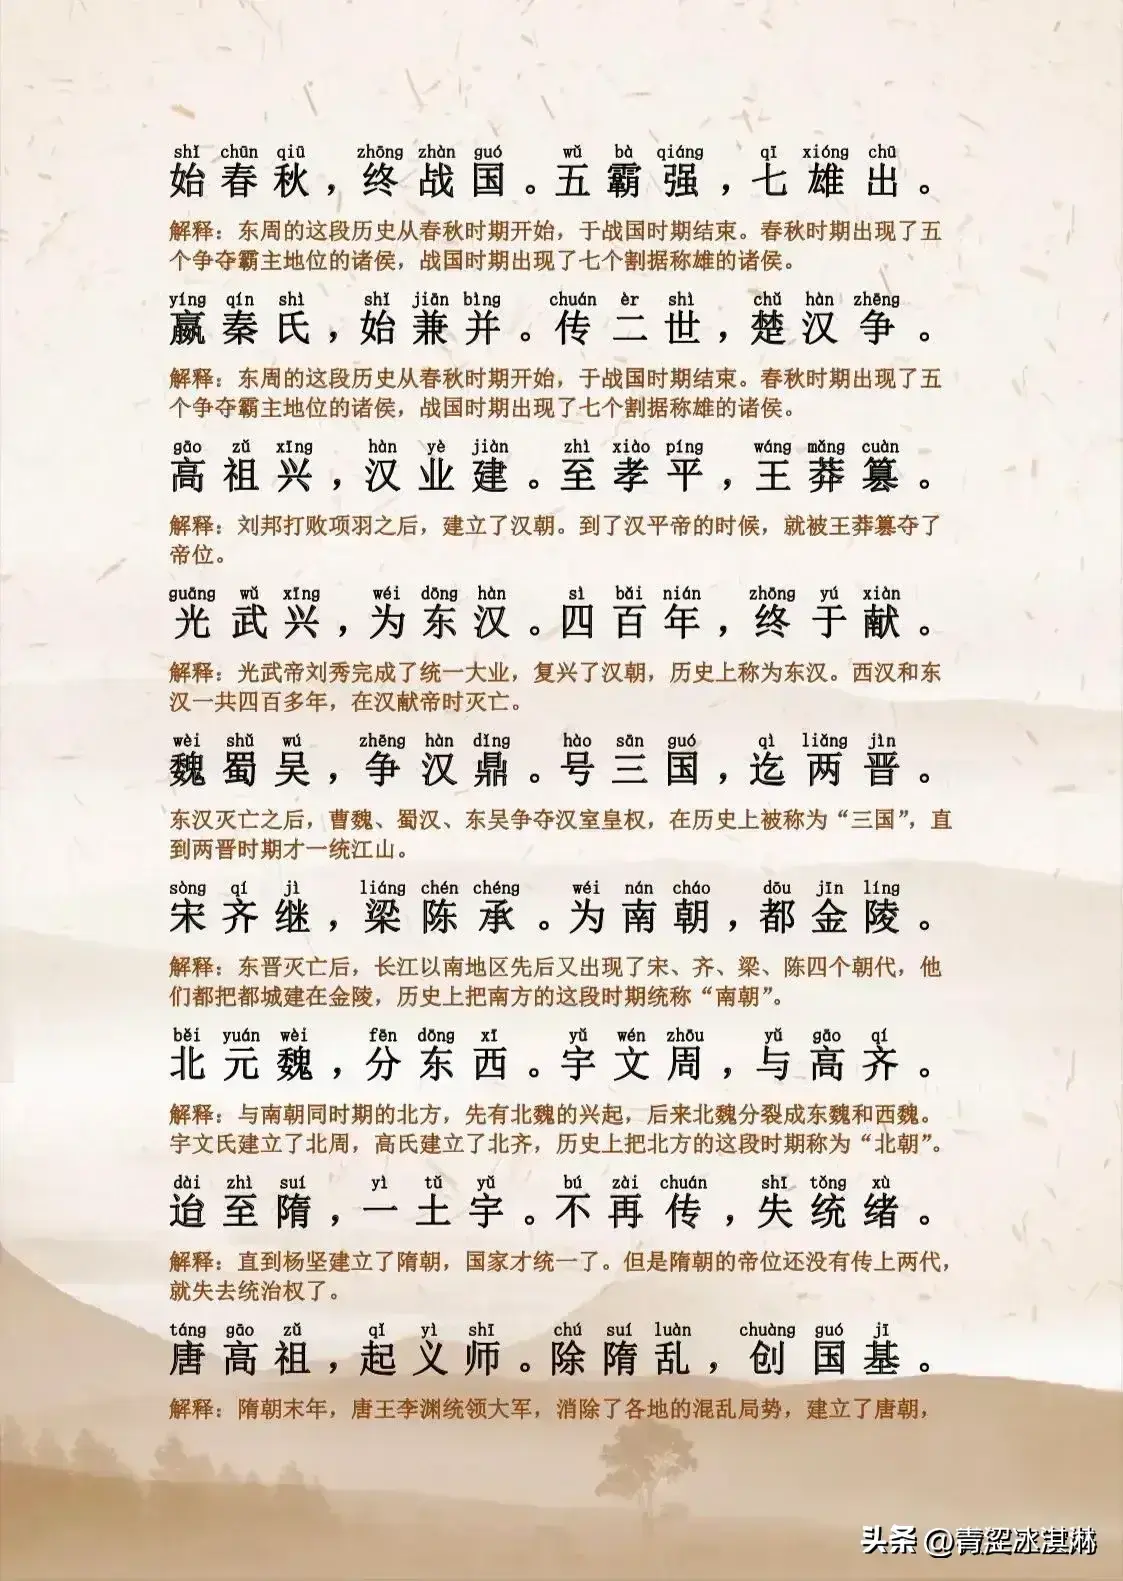 shǐ chūn qiū zhōng zhàn guó wǔ bà qiáng qī xióng chū
始春秋，终战国。五霸强，七雄出。
解释：东周的这段历史从春秋时期开始，于战国时期结束。春秋时期出现了五
个争夺霸主地位的诸侯，战国时期出现了七个割据称雄的诸侯。
yíng qín shì shǐ jiān bìng chuán èr shì chǔ hàn zhēng
嬴秦氏，始兼并。传二世，楚汉争。
解释：东周的这段历史从春秋时期开始，于战国时期结束。春秋时期出现了五
个争夺霸主地位的诸侯，战国时期出现了七个割据称雄的诸侯。
gāo zǔ xīng hàn yè jiàn zhì xiào píng wáng mǎng cuàn
高祖兴，汉业建。至孝平，王莽篡。
解释：刘邦打败项羽之后，建立了汉朝。到了汉平帝的时候，就被王莽篡夺了
帝位。
guāng wǔ xīng wéi dōng hàn sì bǎi nián zhōng yú xiàn
光武兴，为东汉。四百年，终于献。
解释：光武帝刘秀完成了统一大业，复兴了汉朝，历史上称为东汉。西汉和东
汉一共四百多年，在汉献帝时灭亡。
wèi shǔ wú zhēng hàn dǐng hào sān guó qì liǎng jìn
魏蜀吴，争汉鼎。号三国，迄两晋。
东汉灭亡之后，曹魏、蜀汉、东吴争夺汉室皇权，在历史上被称为“三国”，直
到两晋时期才一统江山。
sòng qí jì liáng chén chéng wéi nán cháo dōu jīn líng
宋齐继，梁陈承。为南朝，都金陵。
解释：东晋灭亡后，长江以南地区先后又出现了宋、齐、梁、陈四个朝代，他
们都把都城建在金陵，历史上把南方的这段时期统称“南朝”。
běi yuán wèi fēn dōng xī yǔ wén zhōu yǔ gāo qí
北元魏，分东西。宇文周，与高齐。
解释：与南朝同时期的北方，先有北魏的兴起，后来北魏分裂成东魏和西魏。
宇文氏建立了北周，高氏建立了北齐，历史上把北方的这段时期称为“北朝”。
dài zhì suí yì tǔ yǔ bú zài chuán shī tǒng xù
迨至隋，一土宇。不再传，失统绪。
解释：直到杨坚建立了隋朝，国家才统一了。但是隋朝的帝位还没有传上两代，
就失去统治权了。
táng gāo zǔ qǐ yì shī chú suí luàn chuàng guó jī
唐高祖，起义师。除隋乱，创国基。
解释：隋朝末年，唐王李渊统领大军，消除了各地的混乱局势，建立了唐朝，
头条 @青涩冰淇淋